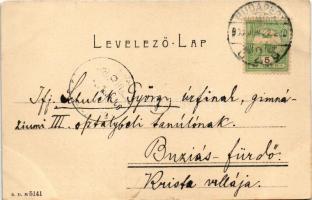 Levelező-Lap
BUDAPEST
5
Ifj. Schulek György úrfinak, gimná-
ziumi III. osztálybeli tanulónak.
Buziás-fürdő.
Krista villája.
S. D. M 5141